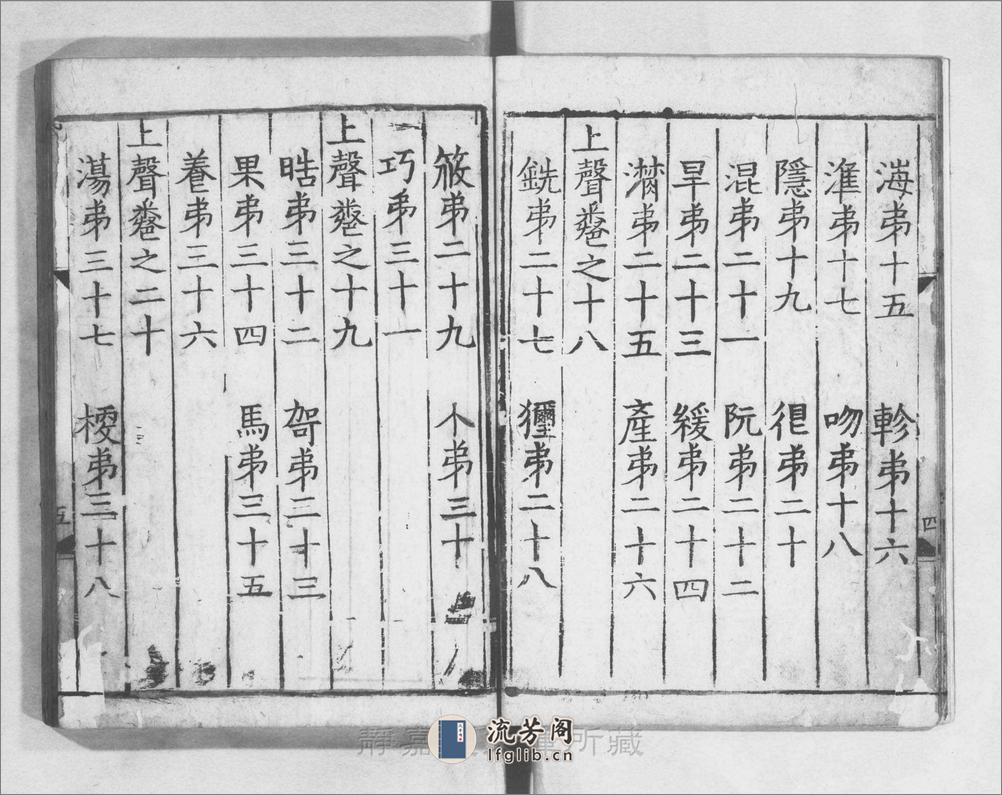 海弟十五 軫弟十六
準弟十七 吻弟十八
隱弟十九 很弟二十
混弟二十一 阮弟二十二
旱弟二十三 緩弟二十四
潸弟二十五 產弟二十六
上聲卷之十八
銑弟二十七 獮弟二十八
四
筱弟二十九 小弟三十
巧弟三十一
上聲卷之十九
晧弟三十二 哿弟三十三
果弟三十四 馬弟三十五
養弟三十六
上聲卷之二十
蕩弟三十七 梗弟三十八
五
靜嘉 所藏
流芳阁
lfglib.cn